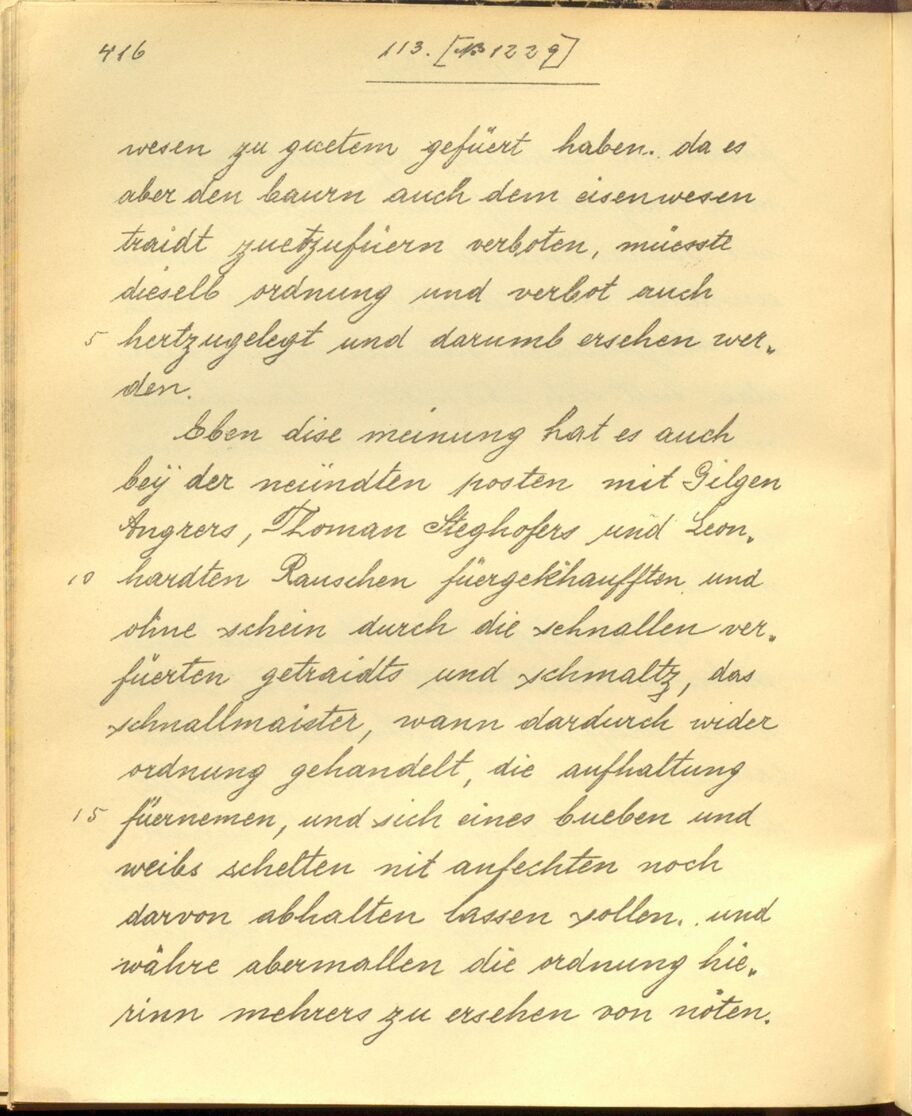 416 113. [NB 1229]
wesen zu guetem gefüert haben. da es
aber den baurn auch dem eisenwesen
traidt zuetzufüern verboten, müesste
dieselb ordnung und verbot auch
5 hertzugelegt und darumb ersehen wer„
den.
Eben dise meinung hat es auch
beÿ der neündten posten mit Gilgen
Angrers, Thoman Steghofers und Leon„
10 hardten Rauschen füergekhaufften und
ohne schein durch die schnallen ver„
füerten getraidts und schmaltz, das
schnallmaister, wann dardurch wider
ordnung gehandelt, die aufhaltung
15 füernemen, und sich eines bueben und
weibs schelten nit anfechten noch
darvon abhalten lassen sollen. und
währe abermallen die ordnung hie„
rinn mehrers zu ersehen von nöten.